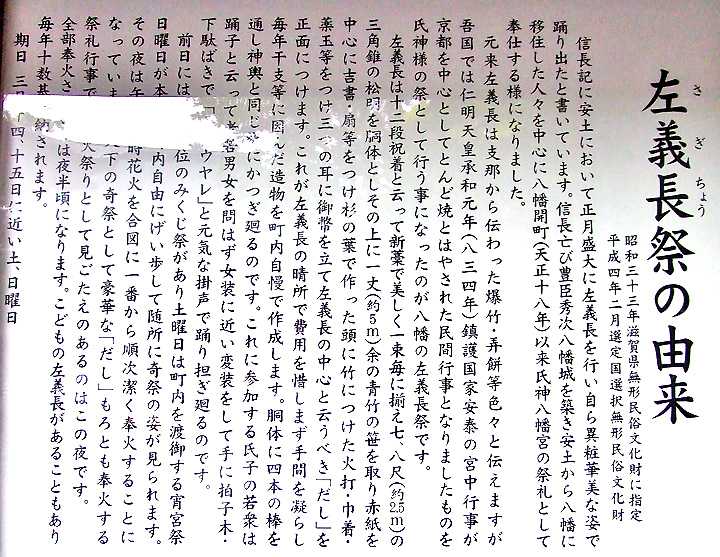 左義長祭の由来
さぎちょう
昭和三十三年滋賀県無形民俗文化財に指定
平成四年二月選定国選択無形民俗文化財
信長記に安土において正月盛大に左義長を行い自ら異粧華美な姿で
踊り出たと書いています。信長亡び豊臣秀次八幡城を築き安土から八幡に
移住した人々を中心に八幡開町(天正十八年)以来氏神八幡宮の祭礼として
奉仕する様になりました。
元来左義長は支那から伝わった爆竹・弄餅等色々と伝えますが
吾国では仁明天皇承和元年(八三四年)鎮護国家安泰の宮中行事が
京都を中心としてとんど焼とはやされた民間行事となりましたものを
氏神様の祭として行う事になったのが八幡の左義長祭です。
左義長は十二段祝着と云って新藁で美しく一束毎に揃え七、八尺(約2.5m)の
三角錐の松明を胴体としその上に一丈(約5m)余の青竹の笹を取り赤紙を
中心に吉書・扇等をつけ杉の葉で作った頭に竹につけた火打・巾着・
薬玉等をつけ三つの耳に御幣を立て左義長の中心と云うべき「だし」を
正面につけます。これが左義長の晴所で費用を惜しまず手間を凝らし
毎年干支等に因んだ造物を町内自慢で作成します。胴体に四本の棒を
通し神輿と同じ にかつぎ廻るのです。これに参加する氏子の若衆は
踊子と云って老若男女を問はず女装に近い変装をして手に拍子木・
下駄ばきで ウヤレ」と元気な掛声で踊り担ぎ廻るのです。
前日には 位のみくじ祭があり土曜日は町内を渡御する宵宮祭
日曜日が本 内自由にげい歩して随所に奇祭の姿が見られます。
その夜は午 時花火を合図に一番から順次潔く奉火することに
なってい 天下の奇祭として豪華な「だし」もろとも奉火する
祭礼行事で 火祭りとして見ごたえのあるのはこの夜です。
全部奉火さ は夜半頃になります。こどもの左義長があることもあり
毎年十数基 納されます。
期日 三月 四、十五日に近い土、日曜日